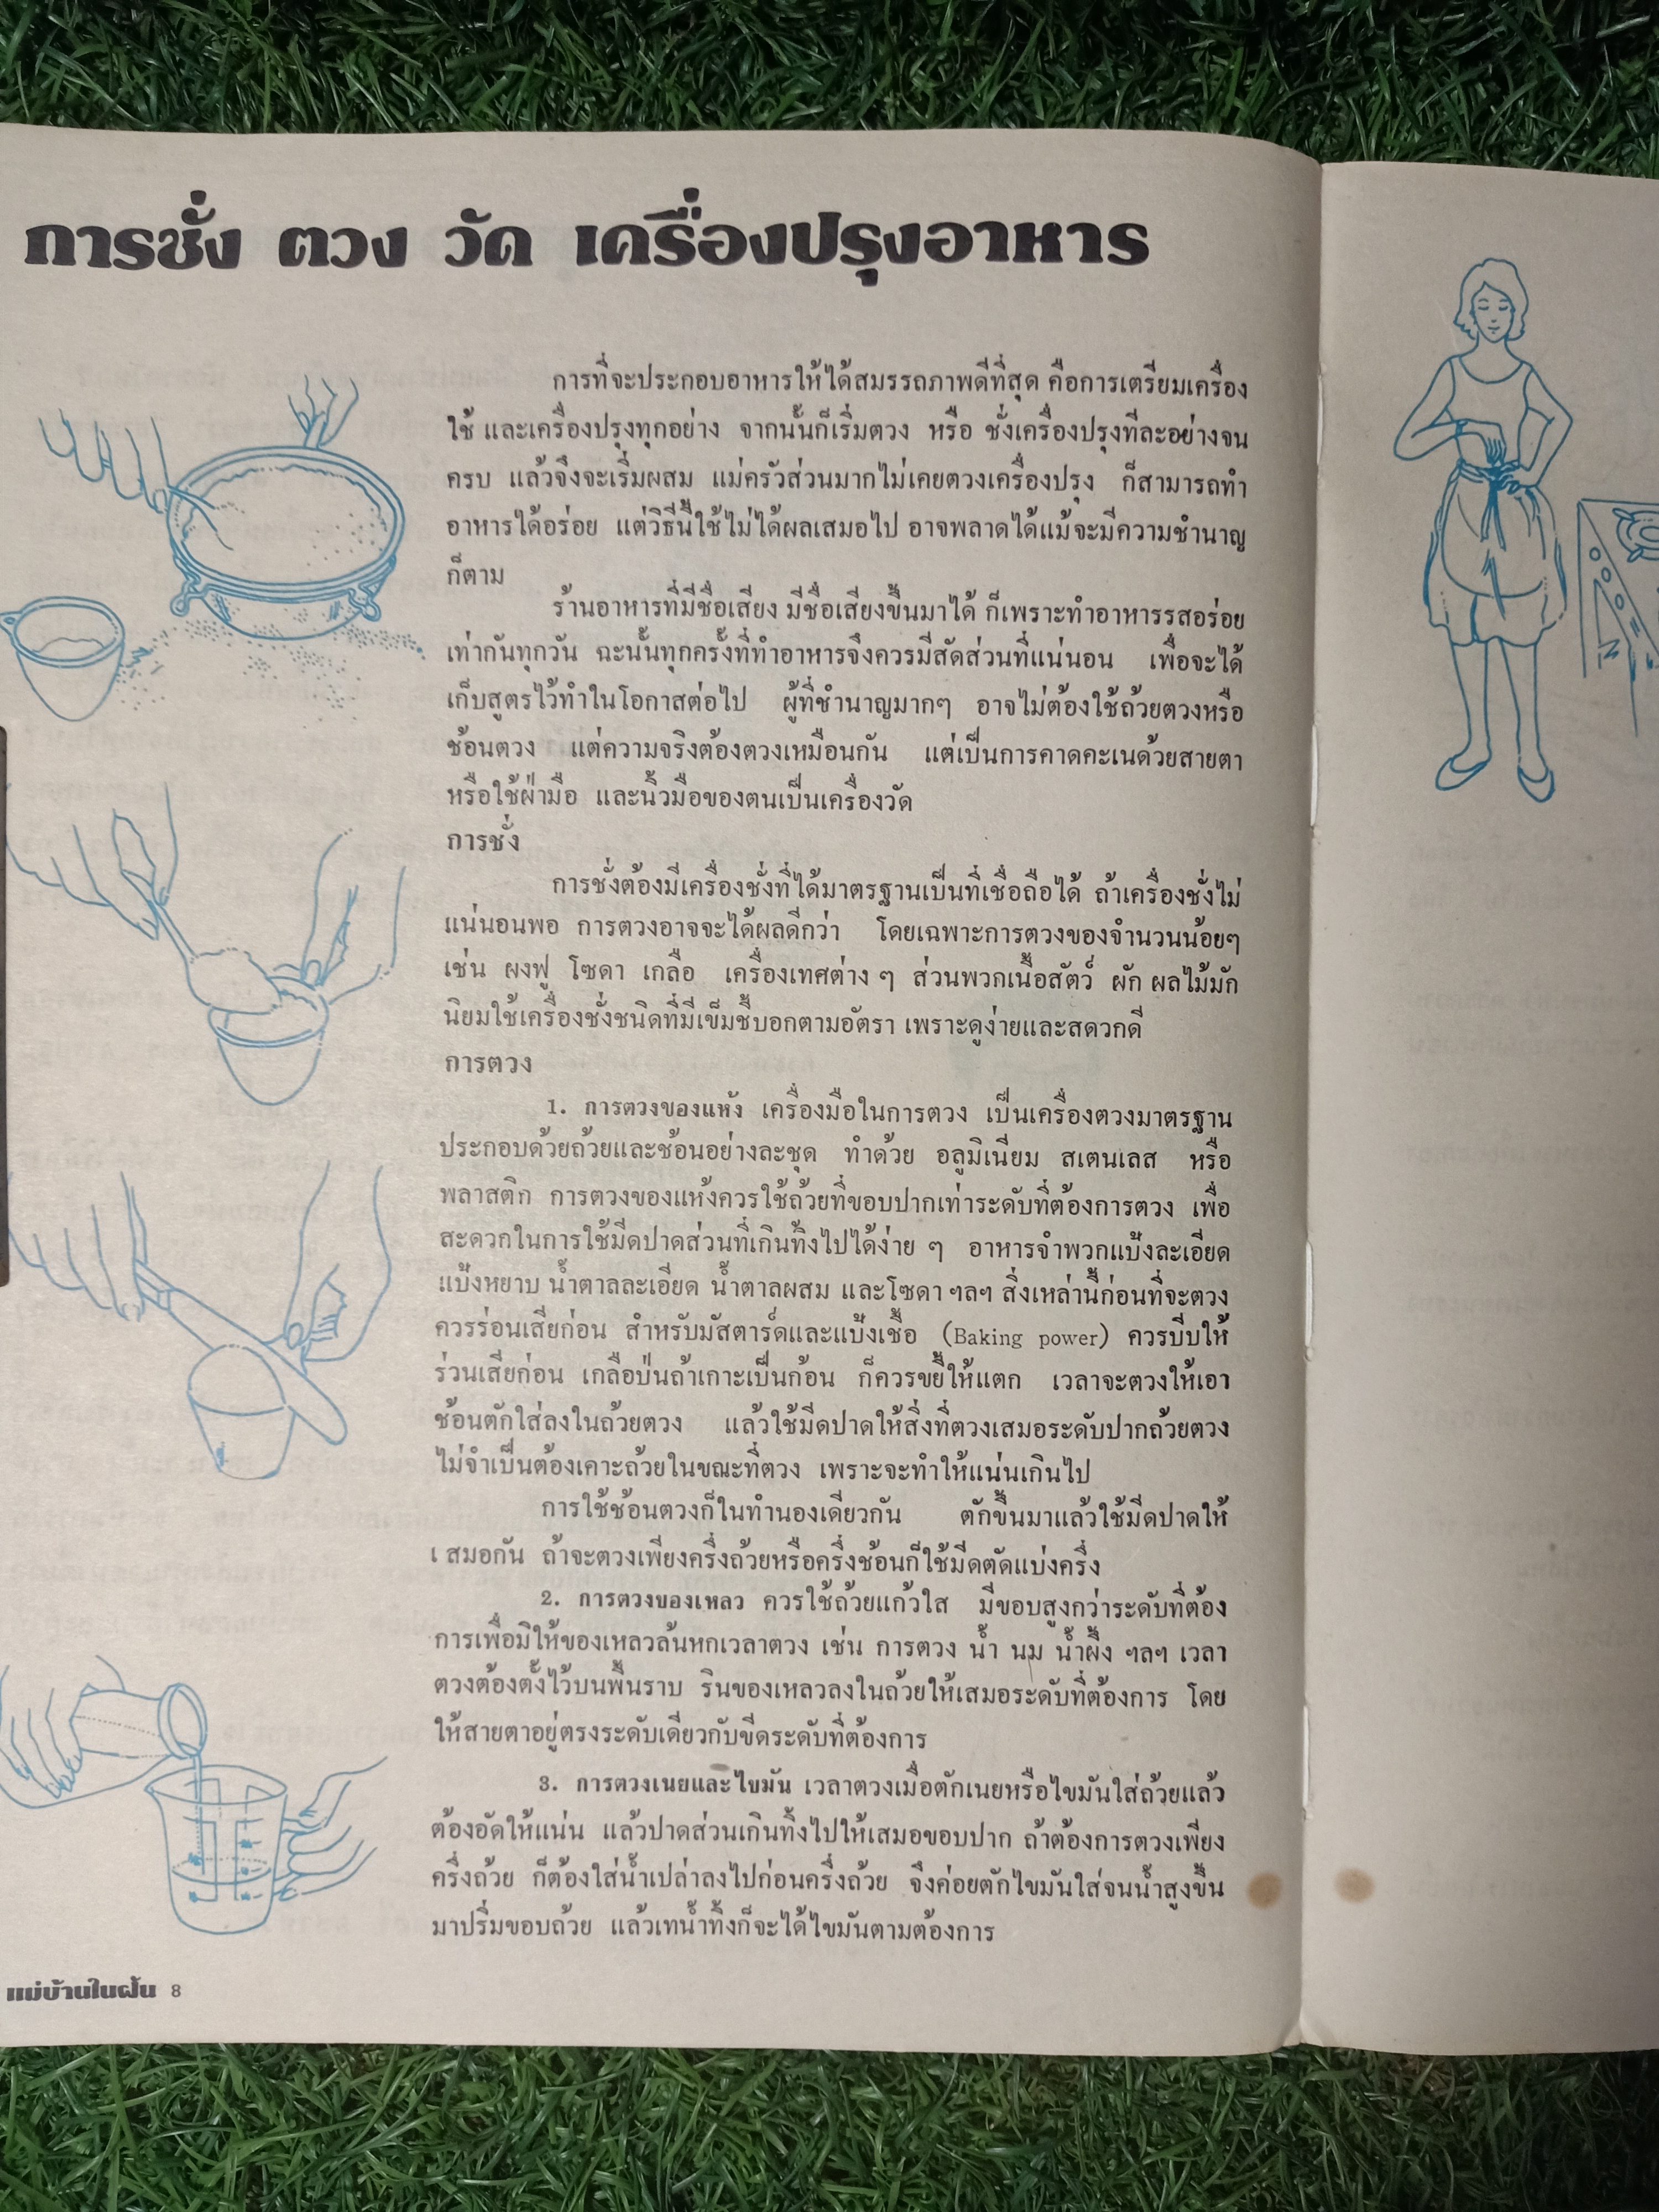 การชั่ง ตวง วัด เครื่องปรุงอาหาร
การที่จะประกอบอาหารให้ได้สมรรถภาพดีที่สุด คือการเตรียมเครื่อง
ใช้ และเครื่องปรุงทุกอย่าง จากนั้นก็เริ่มตวง หรือ ชั่งเครื่องปรุงทีละอย่างจน
ครบ แล้วจึงจะเริ่มผสม แม่ครัวส่วนมากไม่เคยตวงเครื่องปรุง ก็สามารถทำ
อาหารได้อร่อย แต่วิธีนี้ใช้ไม่ได้ผลเสมอไป อาจพลาดได้แม้จะมีความชำนาญ
ก็ตาม
ร้านอาหารที่มีชื่อเสียง มีชื่อเสียงขึ้นมาได้ ก็เพราะทำอาหารรสอร่อย
เท่ากันทุกวัน ฉะนั้นทุกครั้งที่ทำอาหารจึงควรมีสัดส่วนที่แน่นอน เพื่อจะได้
เก็บสูตรไว้ทำในโอกาสต่อไป ผู้ที่ชำนาญมากๆ อาจไม่ต้องใช้ถ้วยตวงหรือ
ช้อนตวง แต่ความจริงต้องตวงเหมือนกัน แต่เป็นการคาดคะเนด้วยสายตา
หรือใช้ฝ่ามือ และนิ้วมือของตนเป็นเครื่องวัด
การชั่ง
การชั่งต้องมีเครื่องชั่งที่ได้มาตรฐานเป็นที่เชื่อถือได้ ถ้าเครื่องชั่งไม่
แน่นอนพอ การตวงอาจจะได้ผลดีกว่า โดยเฉพาะการตวงของจำนวนน้อยๆ
เช่น ผงฟู โซดา เกลือ เครื่องเทศต่าง ๆ ส่วนพวกเนื้อสัตว์ ผัก ผลไม้มัก
นิยมใช้เครื่องชั่งชนิดที่มีเข็มชี้บอกตามอัตรา เพราะดูง่ายและสดวกดี
การตวง
1. การตวงของแห้ง เครื่องมือในการตวง เป็นเครื่องตวงมาตรฐาน
ประกอบด้วยถ้วยและช้อนอย่างละชุด ทำด้วย อลูมิเนียม สเตนเลส หรือ
พลาสติก การตวงของแห้งควรใช้ถ้วยที่ขอบปากเท่าระดับที่ต้องการตวง เพื่อ
สะดวกในการใช้มีดปาดส่วนที่เกินทิ้งไปได้ง่าย ๆ อาหารจำพวกแป้งละเอียด
แป้งหยาบ น้ำตาลละเอียด น้ำตาลผสม และโซดา ฯลฯ สิ่งเหล่านี้ก่อนที่จะตวง
ควรร่อนเสียก่อน สำหรับมัสตาร์ดและแป้งเชื้อ (Baking power) ควรบีบให้
ร่วนเสียก่อน เกลือป่นถ้าเกาะเป็นก้อน ก็ควรขยี้ให้แตก เวลาจะตวงให้เอา
ช้อนตักใส่ลงในถ้วยตวง แล้วใช้มีดปาดให้สิ่งที่ตวงเสมอระดับปากถ้วยตวง
ไม่จำเป็นต้องเคาะถ้วยในขณะที่ตวง เพราะจะทำให้แน่นเกินไป
การใช้ช้อนตวงก็ในทำนองเดียวกัน ตักขึ้นมาแล้วใช้มีดปาดให้
เ สมอกัน ถ้าจะตวงเพียงครึ่งถ้วยหรือครึ่งช้อนก็ใช้มีดตัดแบ่งครึ่ง
2. การตวงของเหลว ควรใช้ถ้วยแก้วใส มีขอบสูงกว่าระดับที่ต้อง
การเพื่อมิให้ของเหลวล้นหกเวลาตวง เช่น การตวง น้ำ นม น้ำผึ้ง ฯลฯ เวลา
ตวงต้องตั้งไว้บนพื้นราบ รินของเหลวลงในถ้วยให้เสมอระดับที่ต้องการ โดย
ให้สายตาอยู่ตรงระดับเดียวกับขีดระดับที่ต้องการ
3. การตวงเนยและไขมัน เวลาตวงเมื่อตักเนยหรือไขมันใส่ถ้วยแล้ว
ต้องอัดให้แน่น แล้วปาดส่วนเกินทิ้งไปให้เสมอขอบปาก ถ้าต้องการตวงเพียง
ครึ่งถ้วย ก็ต้องใส่น้ำเปล่าลงไปก่อนครึ่งถ้วย จึงค่อยตักไขมันใส่จนน้ำสูงขึ้น
มาปริ่มขอบถ้วย แล้วเทน้ำทิ้งก็จะได้ไขมันตามต้องการ
แม่บ้านในฝัน 8